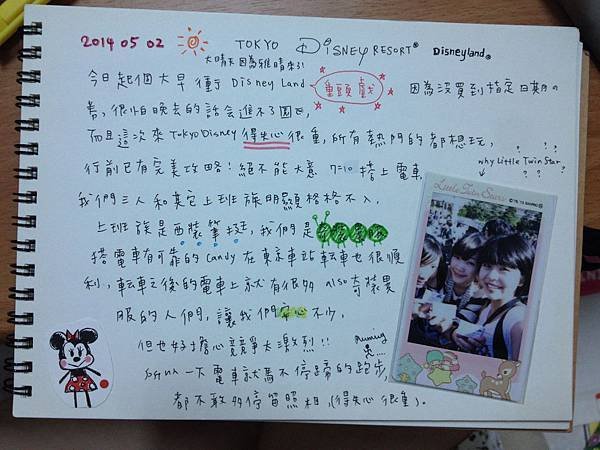 2014 05 02 TOKYO DISNEY RESORT® Disneyland®
大晴天 因為雅晴來!
今日起個大早 衝了 Disney Land 重頭戲 因為沒買到指定日期の
券,很怕晚去的話會進不了園區,
而且這次來 Tokyo Disney 得失心很重,所有熱門的都想玩,
行前已有完美攻略!絕不能大意 7:10 搭上電車,
why Little Twin Star
? ? ? ? ? ?
我們三人和其它上班族明顯格格不入.
上班族是西裝筆挺,我們是
搭電車有可靠的 Candy 在東京車站轉車也很順
利,轉車之後的電車上就有很多 also 奇裝異
服的人們,讓我們安心不少.
但也好擔心競爭太激烈!!
所以一下電車就馬不停蹄的跑步,
running
都不敢多停留照相 (得失心很重)。
Little Twin Stars